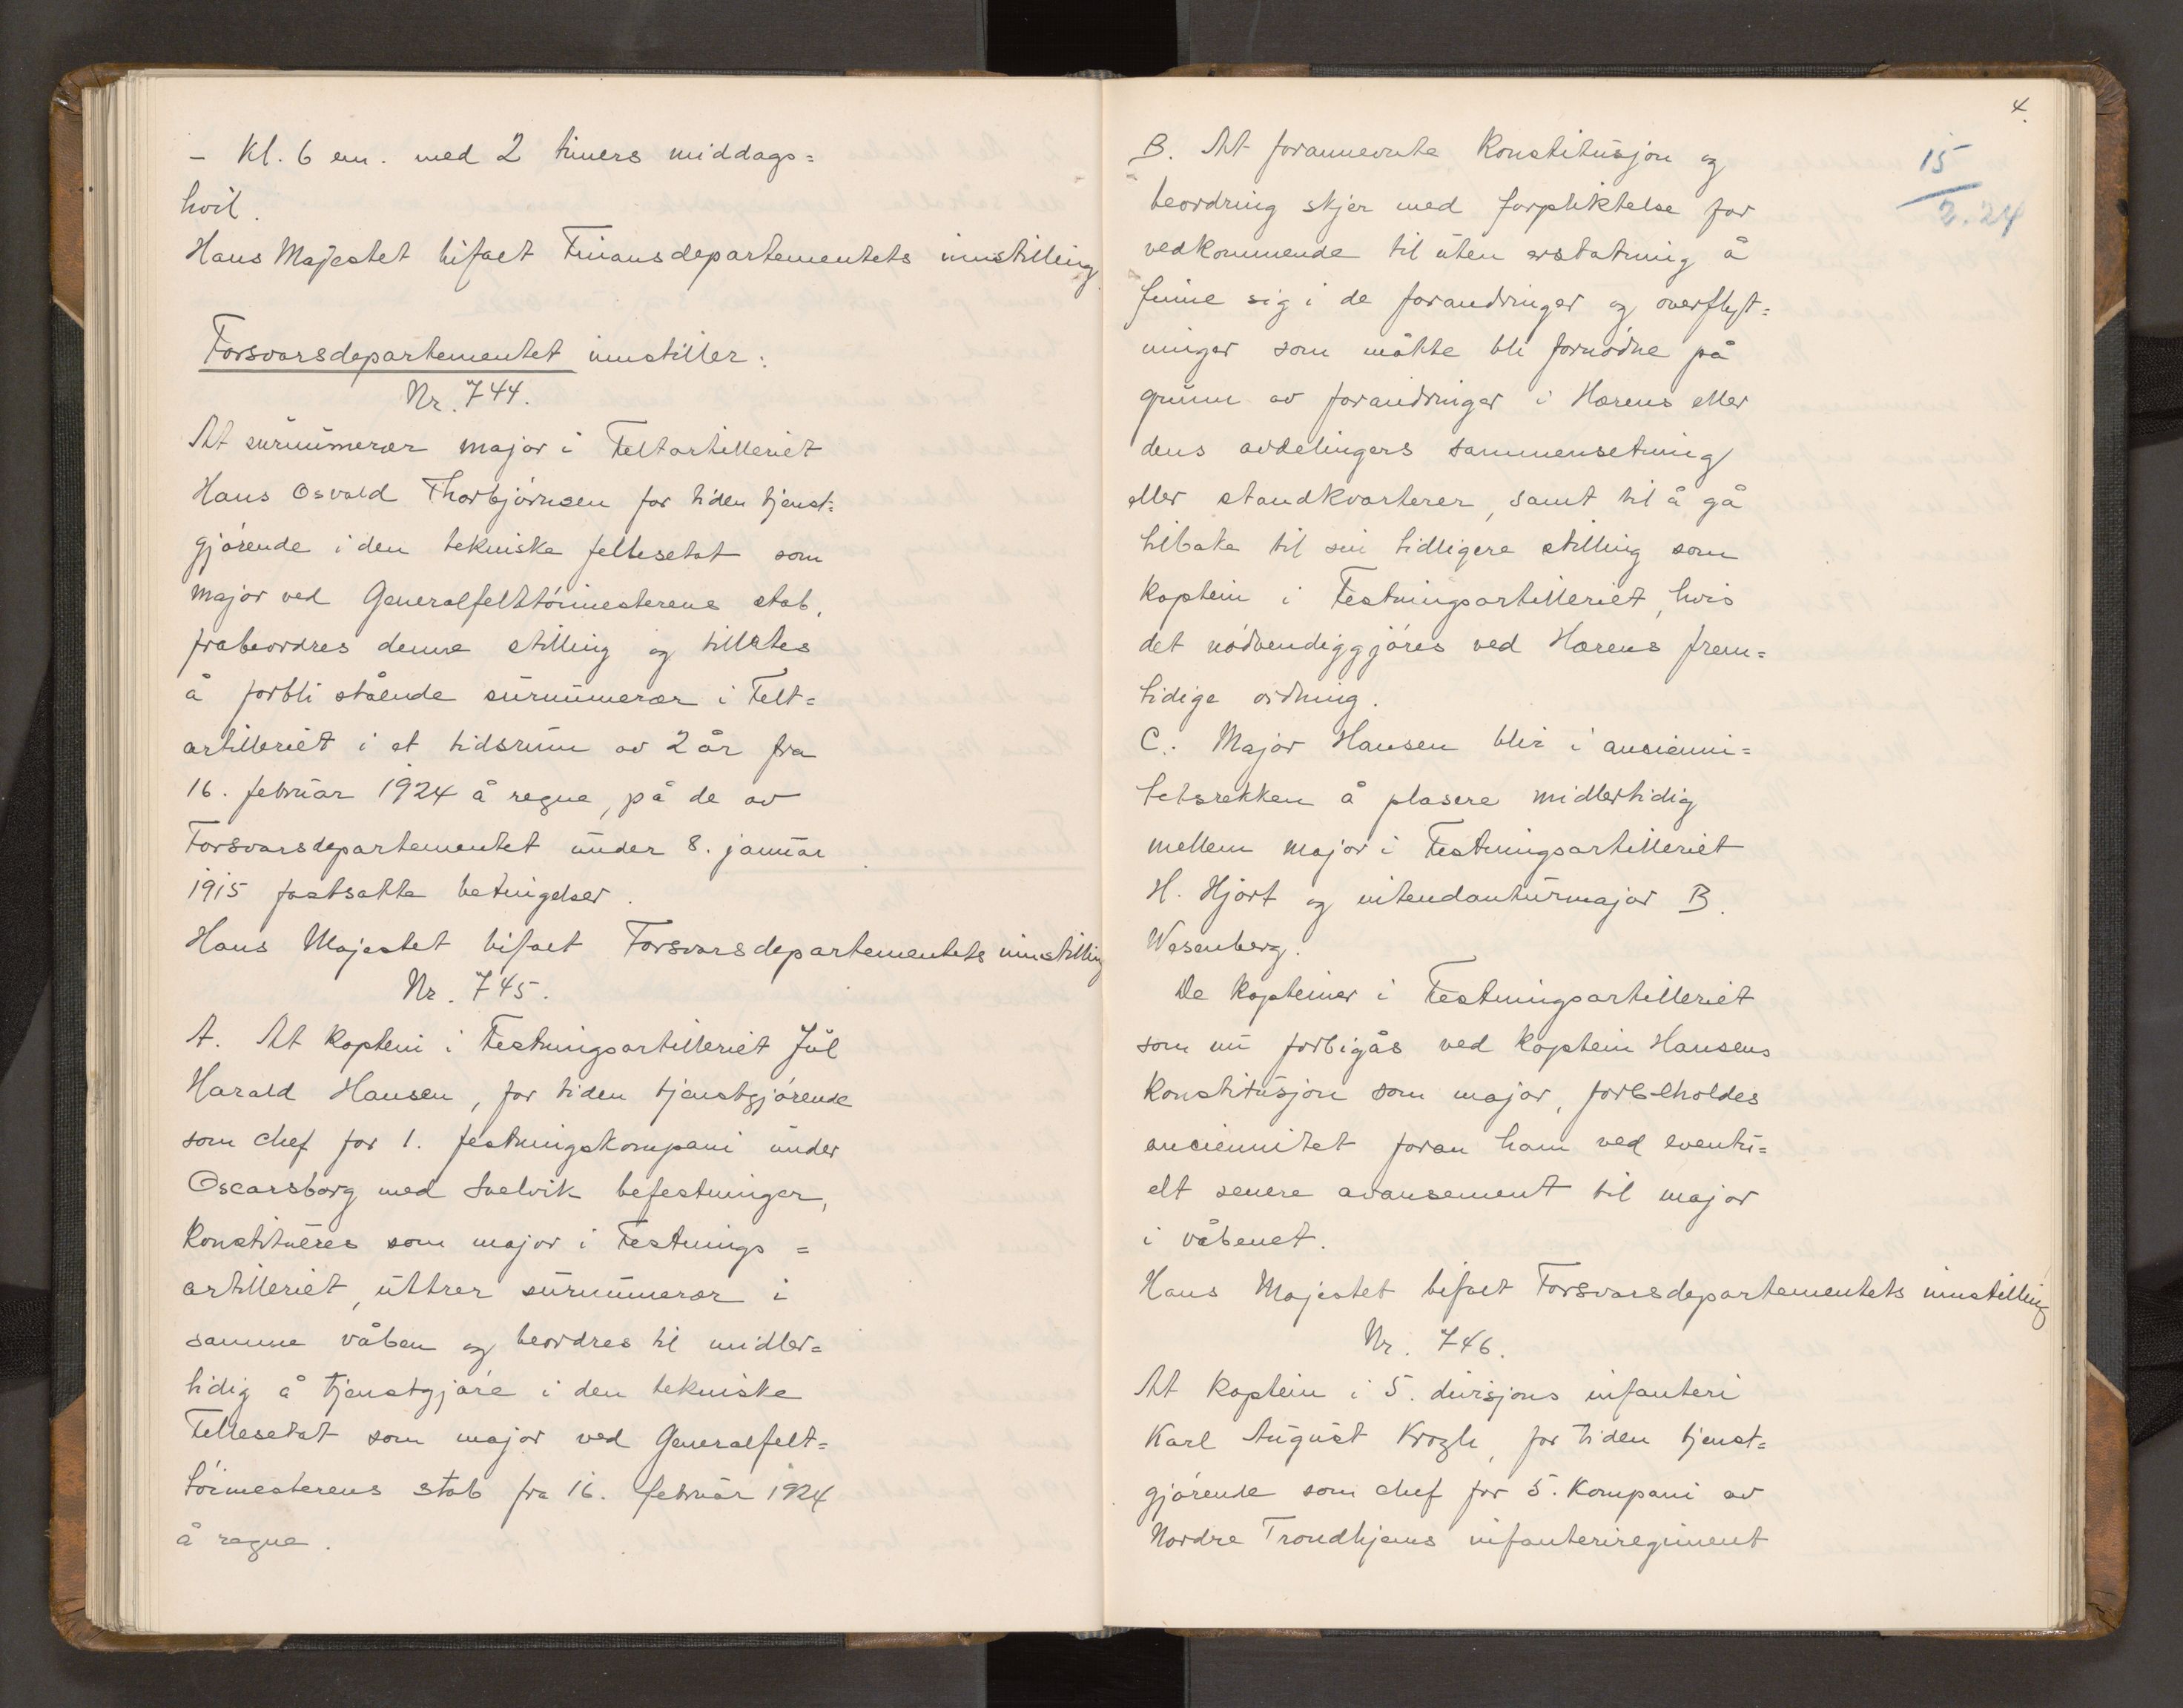 - Kl. 6 em. med 2 timers middags=
hvil.
Hans Majestet bifalt Finansdepartementets innstilling
Forsvarsdepartementet innstiller:
Nr. 744.
At surnumerær major i Feltartilleriet
Hans Osvald Thorbjørnsen for tiden tjenst=
gjørende i den tekniske fellesetat som
major ved Generalfelttøimesterens stab,
frabeordres denne stilling og tillates
å forbli stående surnumerær i Felt=
artilleriet i et tidsrum av 2 år fra
16. februar 1924 å regne, på de av
Forsvarsdepartementet under 8. januar
1915 fastsatte betingelser.
Hans Majestet bifalt Forsvarsdepartementets innstilling
Nr. 745.
A. At kaptein i Festningsartilleriet Jul
Harald Hansen, for tiden tjenstgjørende
som chef for 1. festningskompani under
Oscarsborg med Svelvik befestninger,
konstitueres som major i Festnings=
artilleriet, uttrer surnumerær i
samme våben og beordres til midler=
tidig å tjenstgjøre i den tekniske
Fellesetat som major ved Generalfelt=
tøimesterens stab fra 16. februar 1924
å regne.
4.
15/2.24
B. At forannevnte konstitusjon og
beordring skjer med forpliktelse for
vedkommende til uten erstatning å
finne sig i de forandringer og overflyt=
ninger som måtte bli fornødne på
grunn av forandringer i Hærens eller
dens avdelingers sammensetning
eller standkvarterer, samt til å gå
tilbake til sin tidligere stilling som
kaptein i Festningsartilleriet, hvis
det nødvendiggjøres ved Hærens frem=
tidige ordning.
C. Major Hansen blir i ancienni=
tetsrekken å plasere midlertidig
mellem major i Festningsartilleriet
H. Hjort og intendanturmajor B.
Wesenberg.
De kapteiner i Festningsartilleriet
som nu forbigås ved kaptein Hansens
konstitusjon som major, forbeholdes
anciennitet foran ham ved eventu=
elt senere avansement til major
i våbenet.
Hans Majestet bifalt Forsvarsdepartementets innstilling
Nr. 746.
At kaptein i 5. divisjons infanteri
Karl August Krogh, for tiden tjenst=
gjørende som chef for 5. kompani av
Nordre Trondhjems infanteriregiment